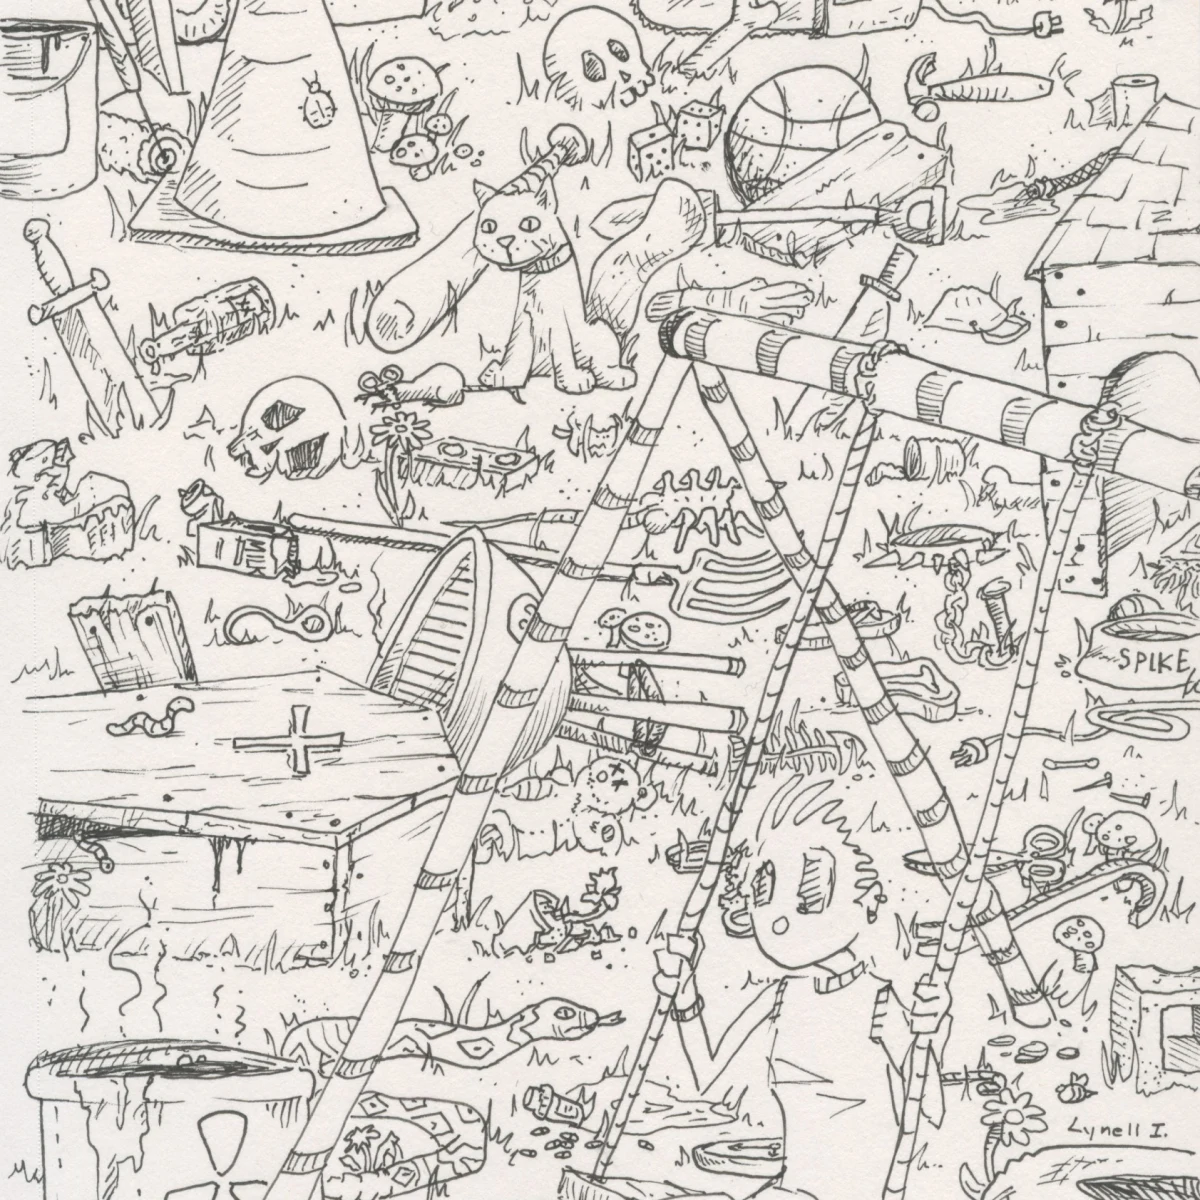 SPIKE
Lynell I.